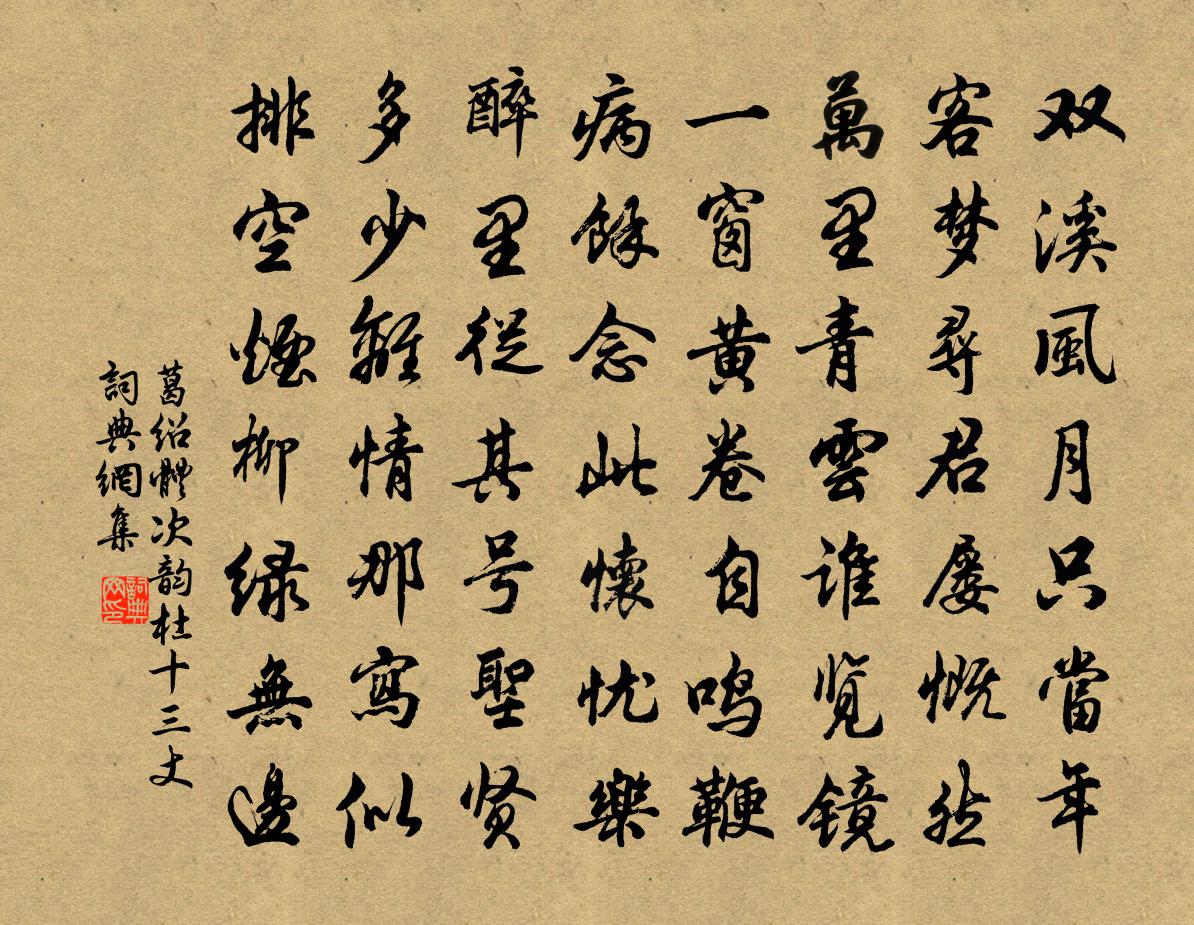 双溪風月只當年
客梦尋君屡慨然
萬里青雲谁览镜
一窗黄卷自鸣鞭
病餘念此懷忧樂
醉里從其号聖贤
多少離情那寫似
排空煙柳绿無邊
葛绍體次韵杜十三丈
詞典網集
詞典网印